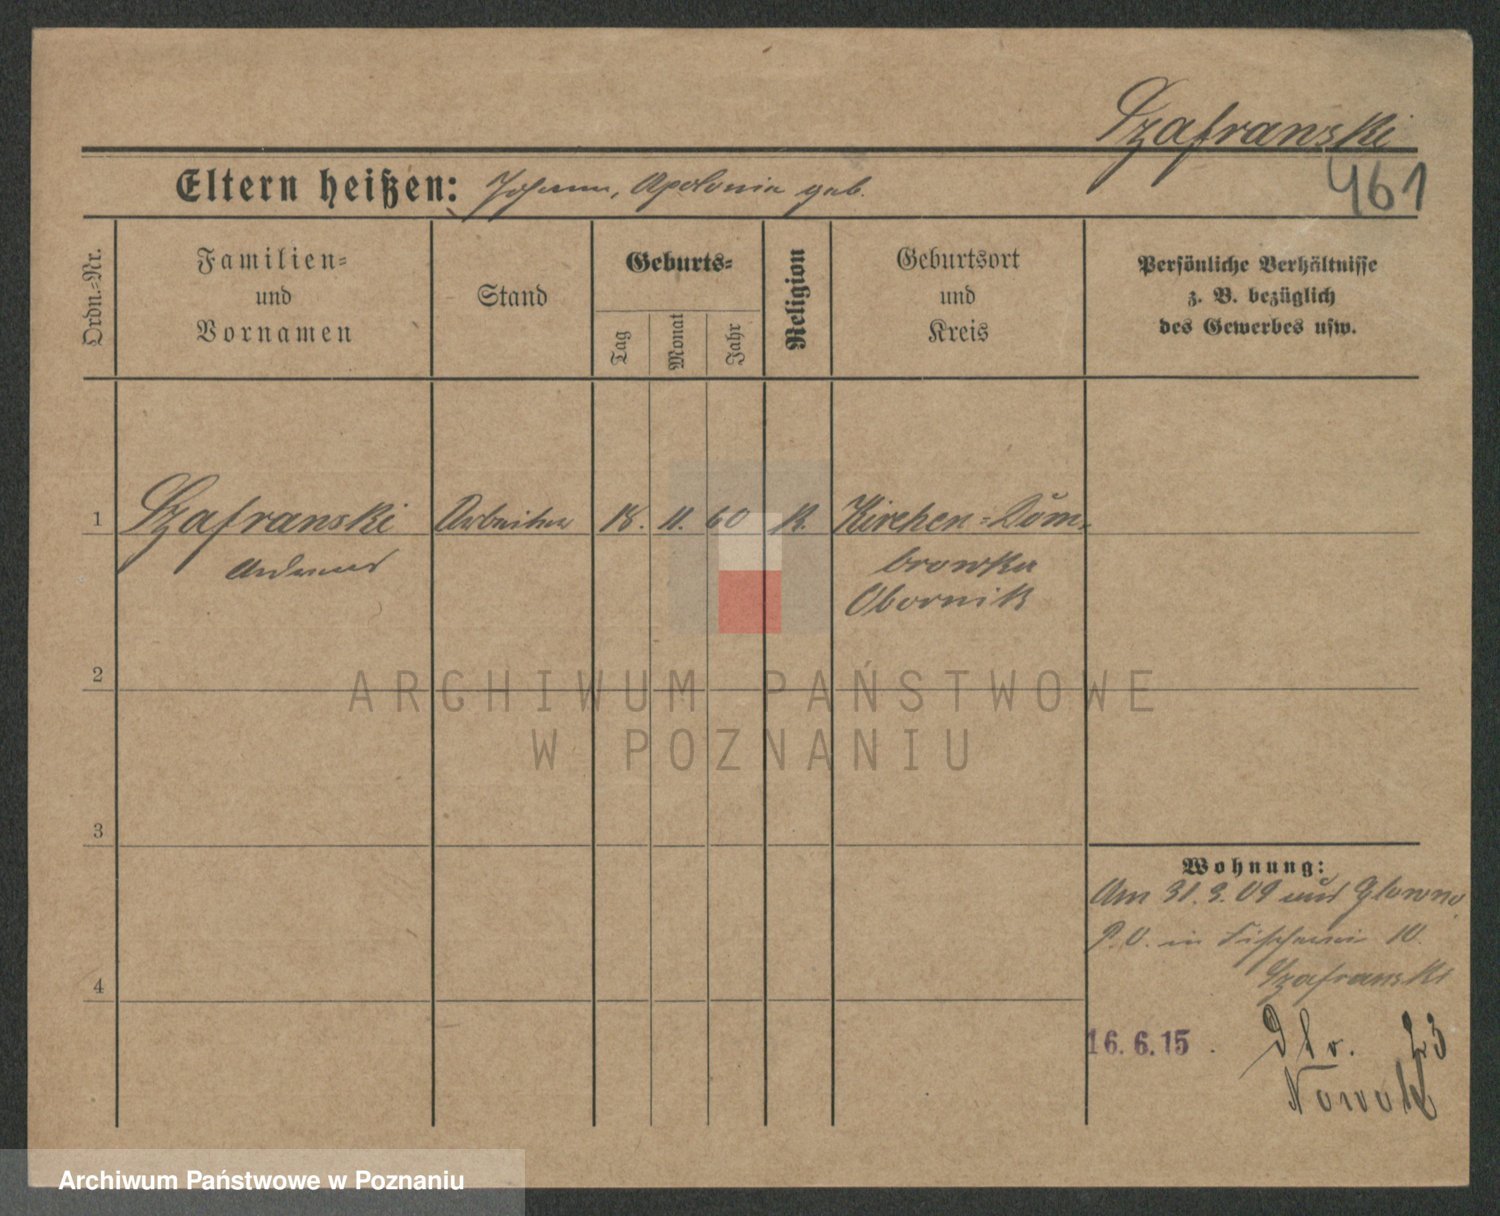 Szafranski
461
Eltern heißen: Johann, Apolonia geb.
Ordn.=Nr.
Familien=
und
Vornamen
Stand
Geburts=
Tag
Monat
Jahr
Religion
Geburtsort
und
Kreis
Persönliche Verhältnisse
z. B. bezüglich
des Gewerbes usw.
1 Szafranski Arbeiter 18. 11. 60 K. Kirchen=Dom-
Andreas browka
Obornik
2
ARCHIWUM PAŃSTWOWE
W POZNANIU
3
Wohnung:
Am 31.3.09 aus Glowno
P.O. in Fischerei 10.
Szafranski
4
16.6.15
23
Nowak
Archiwum Państwowe w Poznaniu